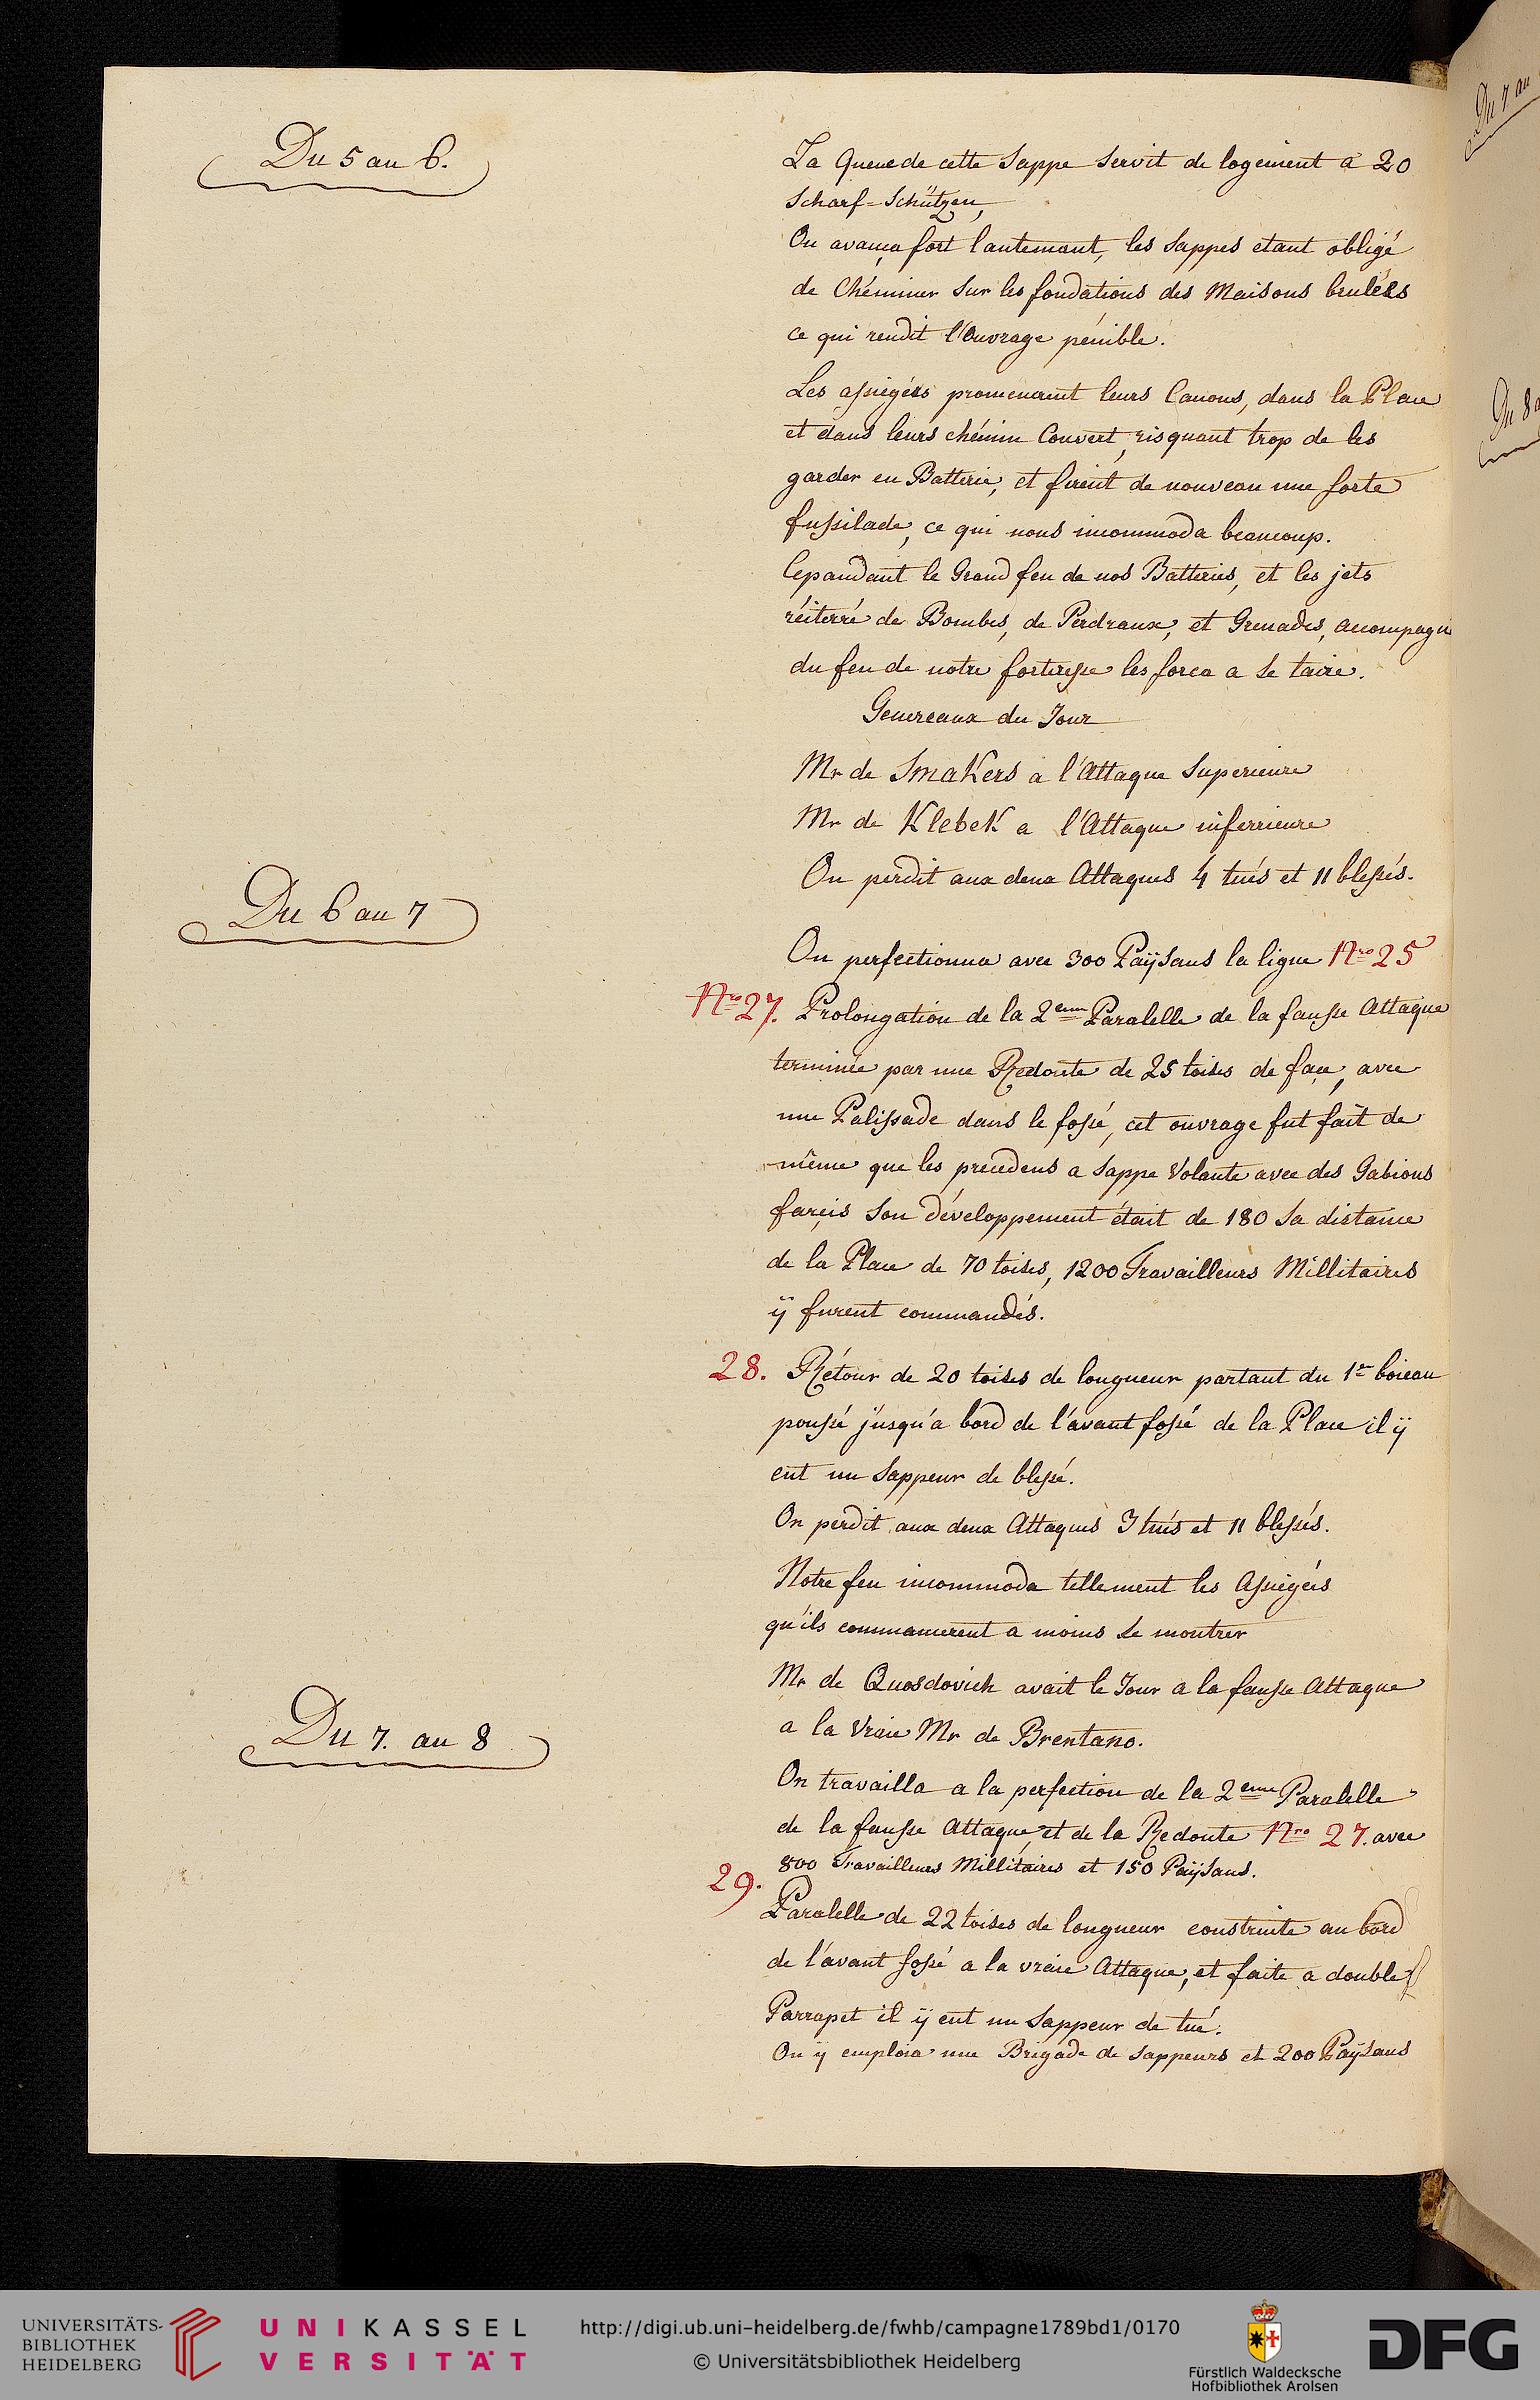 Du 5 au 6.
La Queue de cette Sappe servit de logement a 20
Scharf-Schützen,
On avança fort lantemant, les Sappes etant obligé
de Chéminer sur les fondations des Maisons brulées
ce qui rendit l'Ouvrage pénible.
Les assiegées promenerent leurs Canons, dans la Place
et dans leurs chémin Couvert, risquant trop de les
garder en Batterie, et firent de nouveau une forte
fussilade, ce qui nous incommoda beaucoup.
Cepandant le Grand feu de nos Batteries, et les jets
réiterré de Bombes, de Perdraux, et Grenades, acompagn
du feu de notre forteresse les forca a se taire.
Genereaux du Jour
Mr de Smakers a l'Attaque Superieure
Mr de Klebek a l'Attaque inferrieure
On perdit aux deux Attaques 4 tués et 11 blessés.
Du 6 au 7
On perfectionna avec 300 Paÿsans la ligne Nro 25
Nro 27. Prolongation de la 2eme Paralelle de la fausse Attaque
terminée par une Redoute de 25 toises de face, avec
une Palissade dans le fossé, cet ouvrage fut fait de
même que les precedens a Sappe Volante avec des Gabions
farçis Son développement était de 180 Sa distance
de la Place de 70 toises, 1200 Travailleurs Millitaires
ÿ furent commandés.
28. Rétour de 20 toises de longueur partant du 1r boieau
poussé jusqu'a bord de l'avant fossé de la Place il ÿ
eut un Sappeur de blessé.
On perdit aux deux Attaques 3 tués et 11 blessés.
Notre feu incommoda tellement les Assiegées
qu'ils commancerent a moins se montrer
Mr de Quosdovich avait le Jour a la fausse Attaque
a la Vraie Mr de Brentano.
Du 7. au 8
On travailla a la perfection de la 2eme Paralelle
de la fausse Attaque et de la Redoute Nro 27. avec
800 Travailleurs Millitaires et 150 Paÿsans.
29.
Paralelle de 22 toises de longueur construite au bord
de l'avant fossé a la vraie Attaque, et faite a double
Parrapet il ÿ eut un Sappeur de tué.
On ÿ emploia une Brigade de Sappeurs et 200 Paÿsans
Du 7 au
Du 8 a
UNIVERSITÄTS-
BIBLIOTHEK
HEIDELBERG
UNIKASSEL
VERSITÄT
http://digi.ub.uni-heidelberg.de/fwhb/campagne1789bd1/0170
© Universitätsbibliothek Heidelberg
Fürstlich Waldecksche
Hofbibliothek Arolsen
DFG